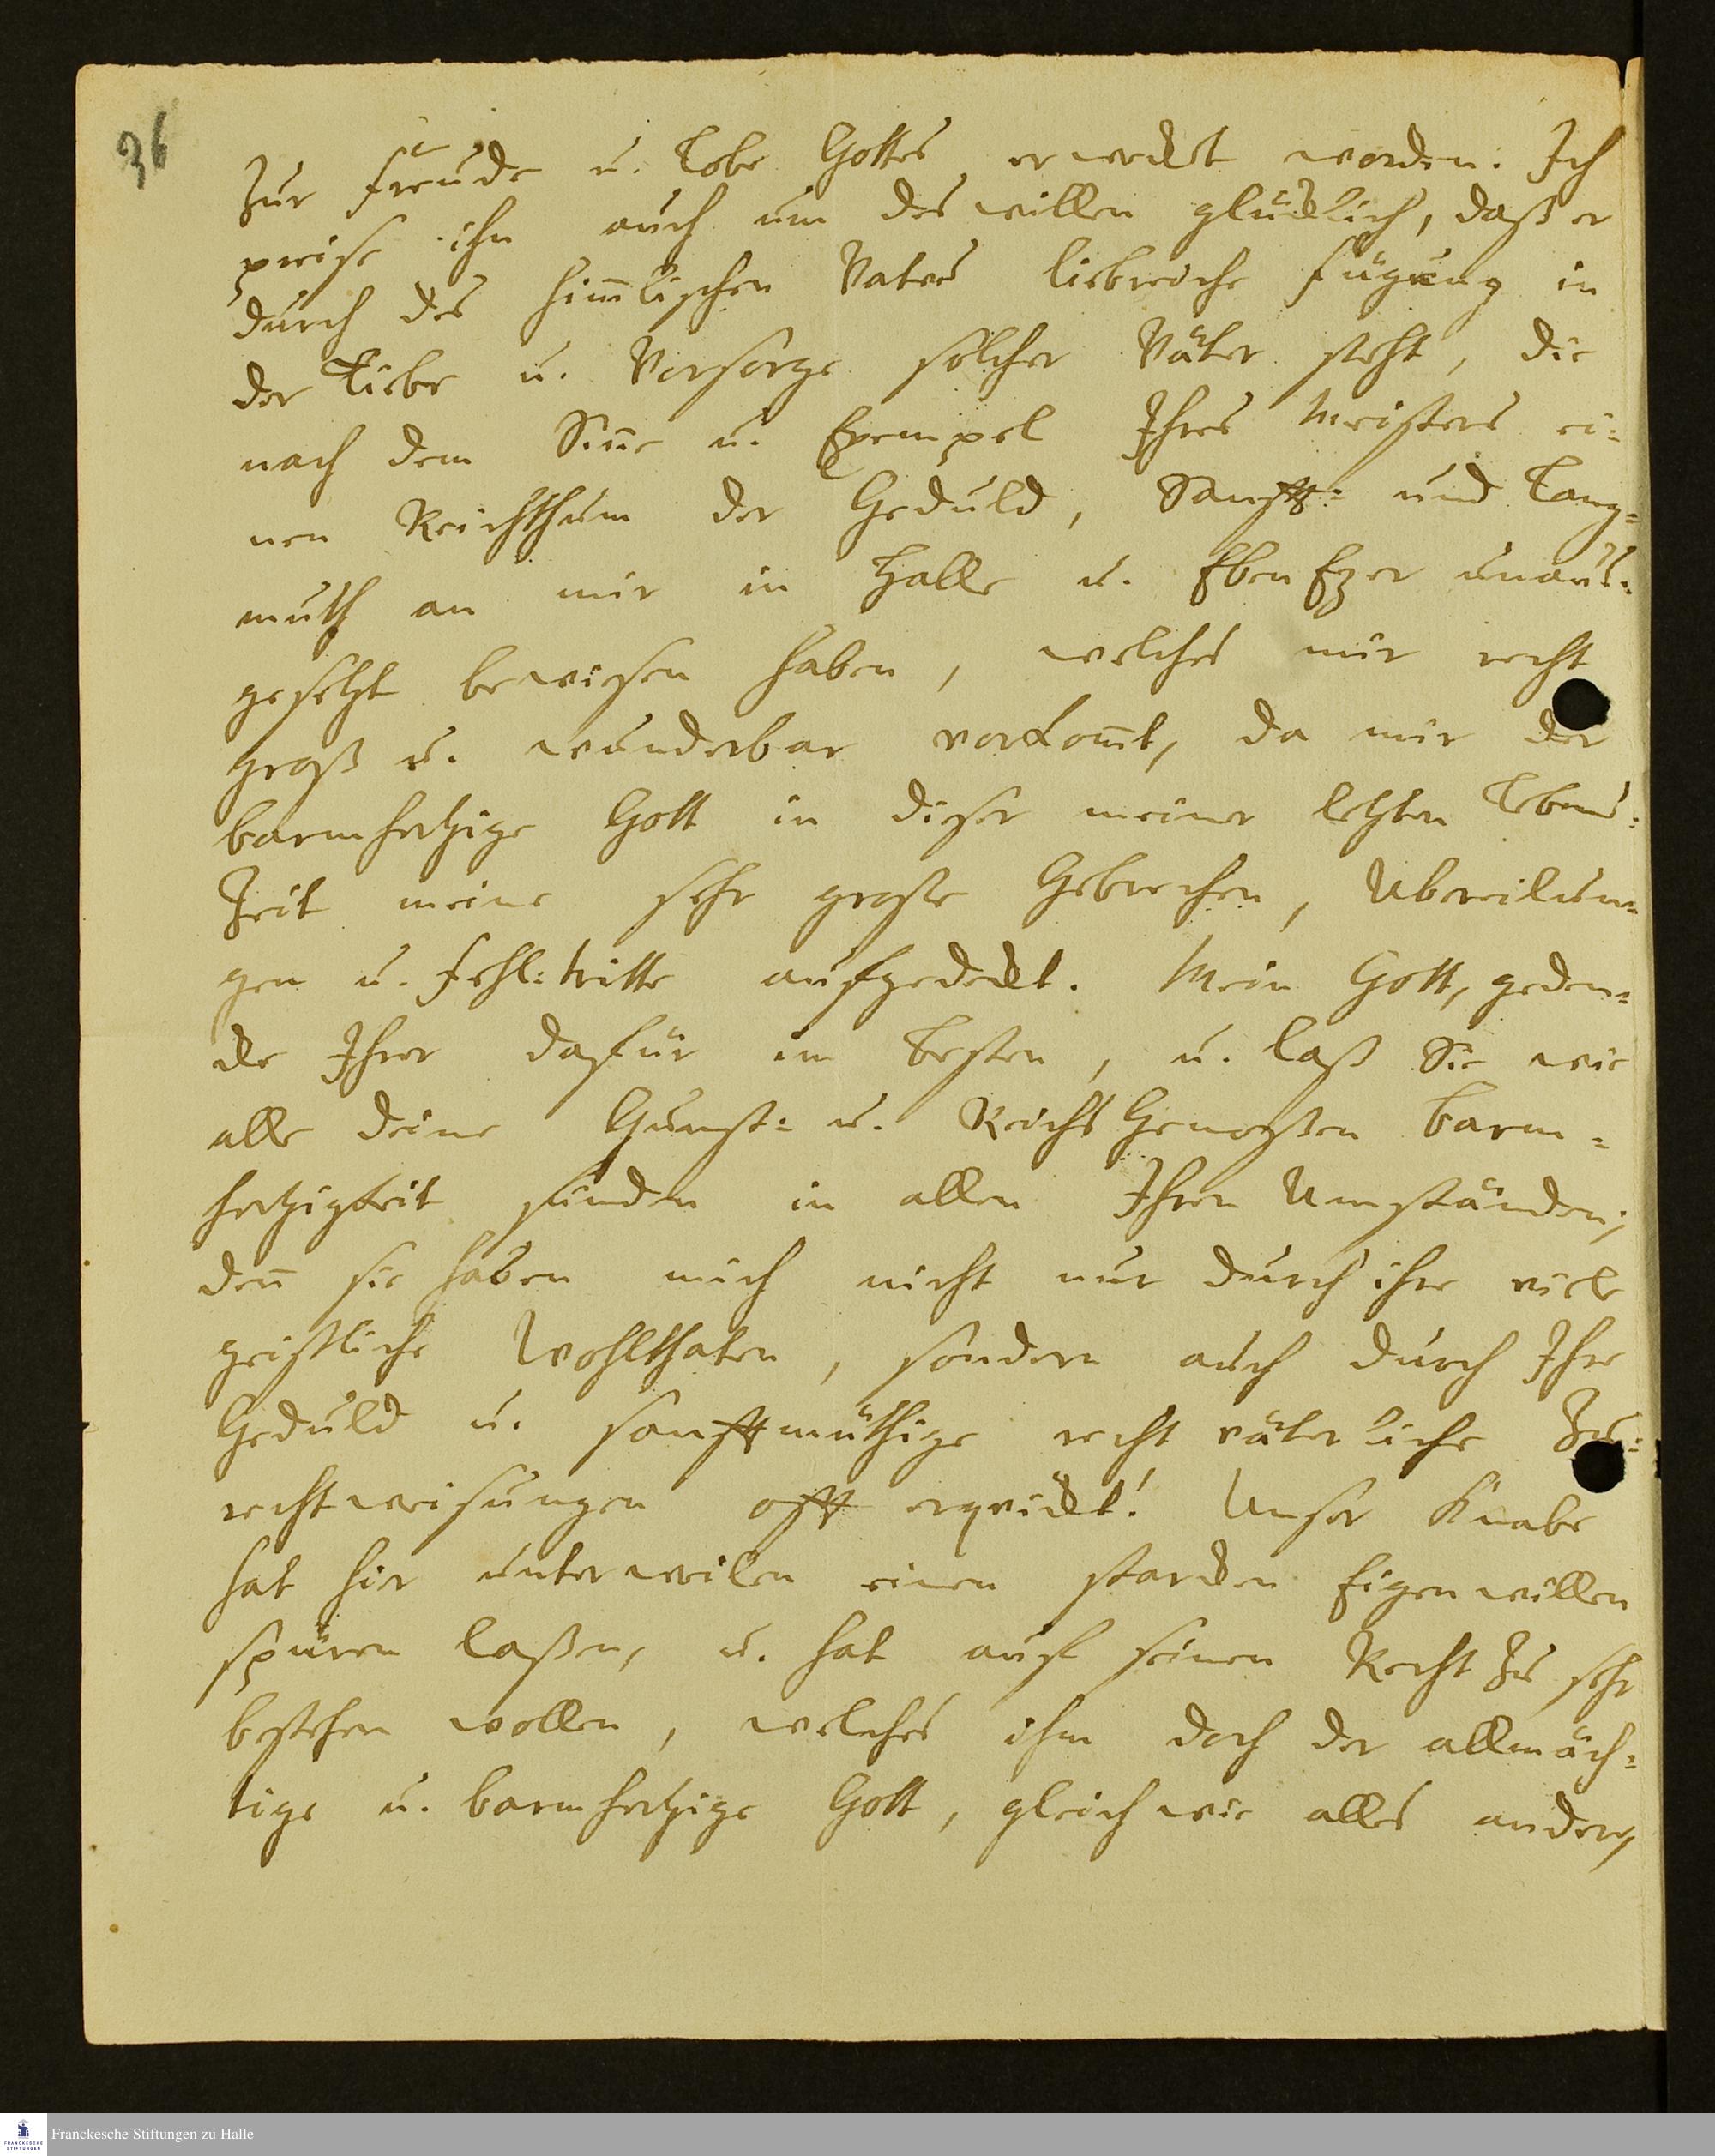 36
zur Freude u. Lobe Gottes erweckt worden. Ich
preise ihn auch um des willen glücklich, daß er
durch des him̅lischen Vaters liebreiche Fügung in
der Liebe u. Vorsorge solcher Väter steht, die
nach dem Sin̅e u. Exempel Ihres Meisters ei=
nen Reichthum der Geduld, Sanfft= und Lang=
muth an mir in Halle u. EbenEzer unaus=
gesetzt bewiesen haben, welches mir recht
groß u. wunderbar vorkom̅t, da mir der
barmhertzige Gott in dieser meiner letzten Lebens=
Zeit meine sehr große Gebrechen, Ubereilun=
gen u. Fehl=tritte aufgedeckt. Mein Gott, geden=
cke Ihrer dafür im besten, u. laß Sie wie
alle deine Gunst= u. ReichsGenoßen barm=
hertzigkeit finden in allen Ihren Umständen;
den̅ sie haben mich nicht nur durch ihre viele
geistliche Wohlthaten, sondern auch durch Ihre
Geduld u. sanfftmüthige recht väterliche Zu=
rechtweisungen offt erquickt! Unser Knabe
hat hier unterweilen einen starcken Eigenwillen
spüren laßen, u. hat auf seinen Recht zu sehr
bestehen wollen, welches ihm doch der allmäch=
tige u. barmhertzige Gott, gleichwie alles andere,
Franckesche Stiftungen zu Halle